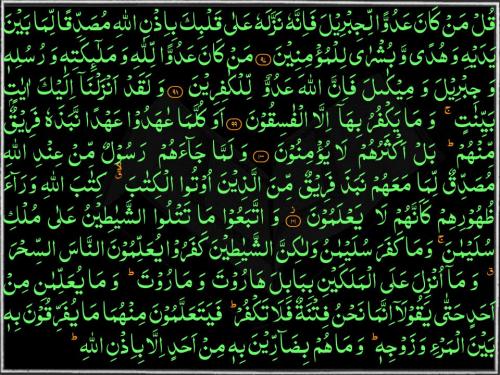 قُلْ مَنْ كَانَ عَدُوًّا لِّجِبْرِیْلَ فَاِنَّهٗ نَزَّلَهٗ عَلٰى قَلْبِكَ بِاِذْنِ اللّٰهِ مُصَدِّقًا لِّمَا بَیْنَ
یَدَیْهِ وَ هُدًى وَّ بُشْرٰى لِلْمُؤْمِنِیْنَ ﴿۹۷﴾ مَنْ كَانَ عَدُوًّا لِّلّٰهِ وَ مَلٰٓىِٕكَتِهٖ وَ رُسُلِهٖ
وَ جِبْرِیْلَ وَ مِیْكٰىلَ فَاِنَّ اللّٰهَ عَدُوٌّ لِّلْكٰفِرِیْنَ ﴿۹۸﴾ وَ لَقَدْ اَنْزَلْنَاۤ اِلَیْكَ اٰیٰتٍۭ
بَیِّنٰتٍ ۚ وَ مَا یَكْفُرُ بِهَاۤ اِلَّا الْفٰسِقُوْنَ ﴿۹۹﴾ اَوَ كُلَّمَا عٰهَدُوْا عَهْدًا نَّبَذَهٗ فَرِیْقٌ
مِّنْهُمْ ؕ بَلْ اَكْثَرُهُمْ لَا یُؤْمِنُوْنَ ﴿۱۰۰﴾ وَ لَمَّا جَآءَهُمْ رَسُوْلٌ مِّنْ عِنْدِ اللّٰهِ
مُصَدِّقٌ لِّمَا مَعَهُمْ نَبَذَ فَرِیْقٌ مِّنَ الَّذِیْنَ اُوْتُوا الْكِتٰبَ كِتٰبَ اللّٰهِ وَرَآءَ
ظُهُوْرِهِمْ كَاَنَّهُمْ لَا یَعْلَمُوْنَ ﴿۱۰۱﴾ وَ اتَّبَعُوْا مَا تَتْلُوا الشَّیٰطِیْنُ عَلٰى مُلْكِ
سُلَیْمٰنَ ۚ وَ مَا كَفَرَ سُلَیْمٰنُ وَ لٰكِنَّ الشَّیٰطِیْنَ كَفَرُوْا یُعَلِّمُوْنَ النَّاسَ السِّحْرَ
ۗ وَ مَاۤ اُنْزِلَ عَلَى الْمَلَكَیْنِ بِبَابِلَ هَارُوْتَ وَ مَارُوْتَ ؕ وَ مَا یُعَلِّمٰنِ مِنْ
اَحَدٍ حَتّٰى یَقُوْلَاۤ اِنَّمَا نَحْنُ فِتْنَةٌ فَلَا تَكْفُرْ ؕ فَیَتَعَلَّمُوْنَ مِنْهُمَا مَا یُفَرِّقُوْنَ بِهٖ
بَیْنَ الْمَرْءِ وَ زَوْجِهٖ ؕ وَ مَا هُمْ بِضَآرِّیْنَ بِهٖ مِنْ اَحَدٍ اِلَّا بِاِذْنِ اللّٰهِ ؕ